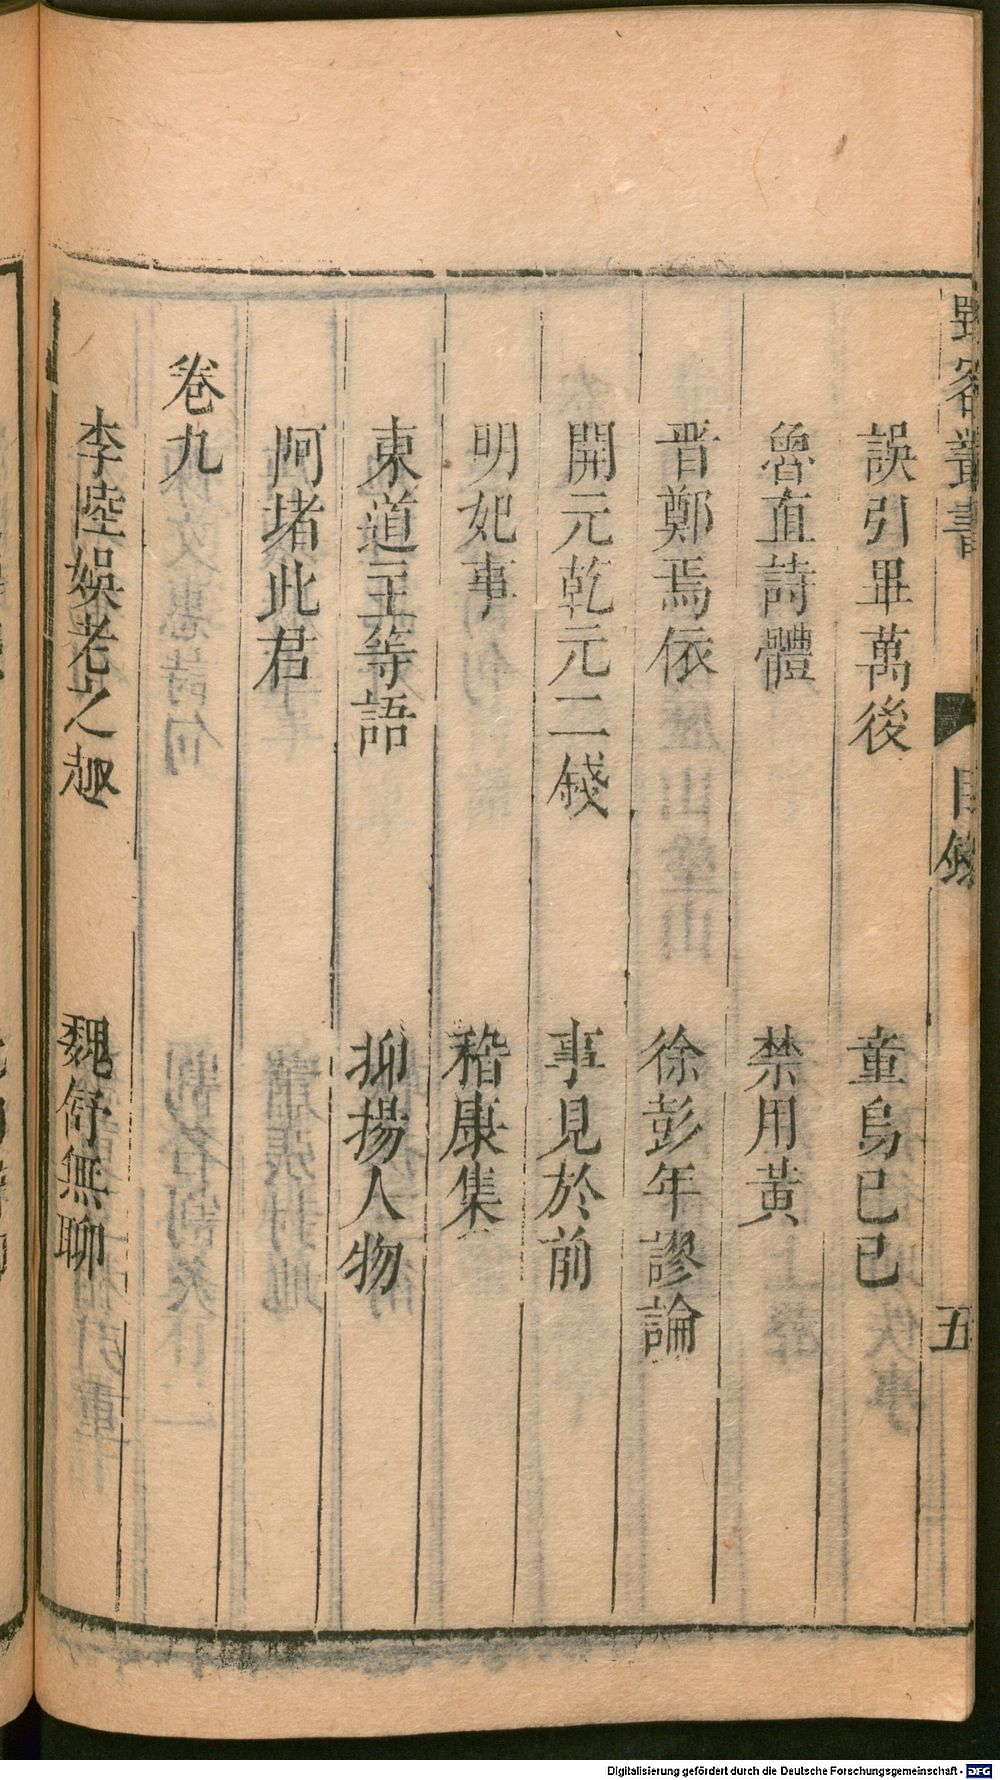 野客叢書
目錄
五
誤引畢萬後 童烏已已
魯直詩體 禁用黃
晋鄭焉依 徐彭年謬論
開元乾元二錢 事見於前
明妃事 稽康集
東道主等語 抑揚人物
阿堵此君
卷九
李陸娛老之趣 魏舒無聊
Digitalisierung gefördert durch die Deutsche Forschungsgemeinschaft - DFG